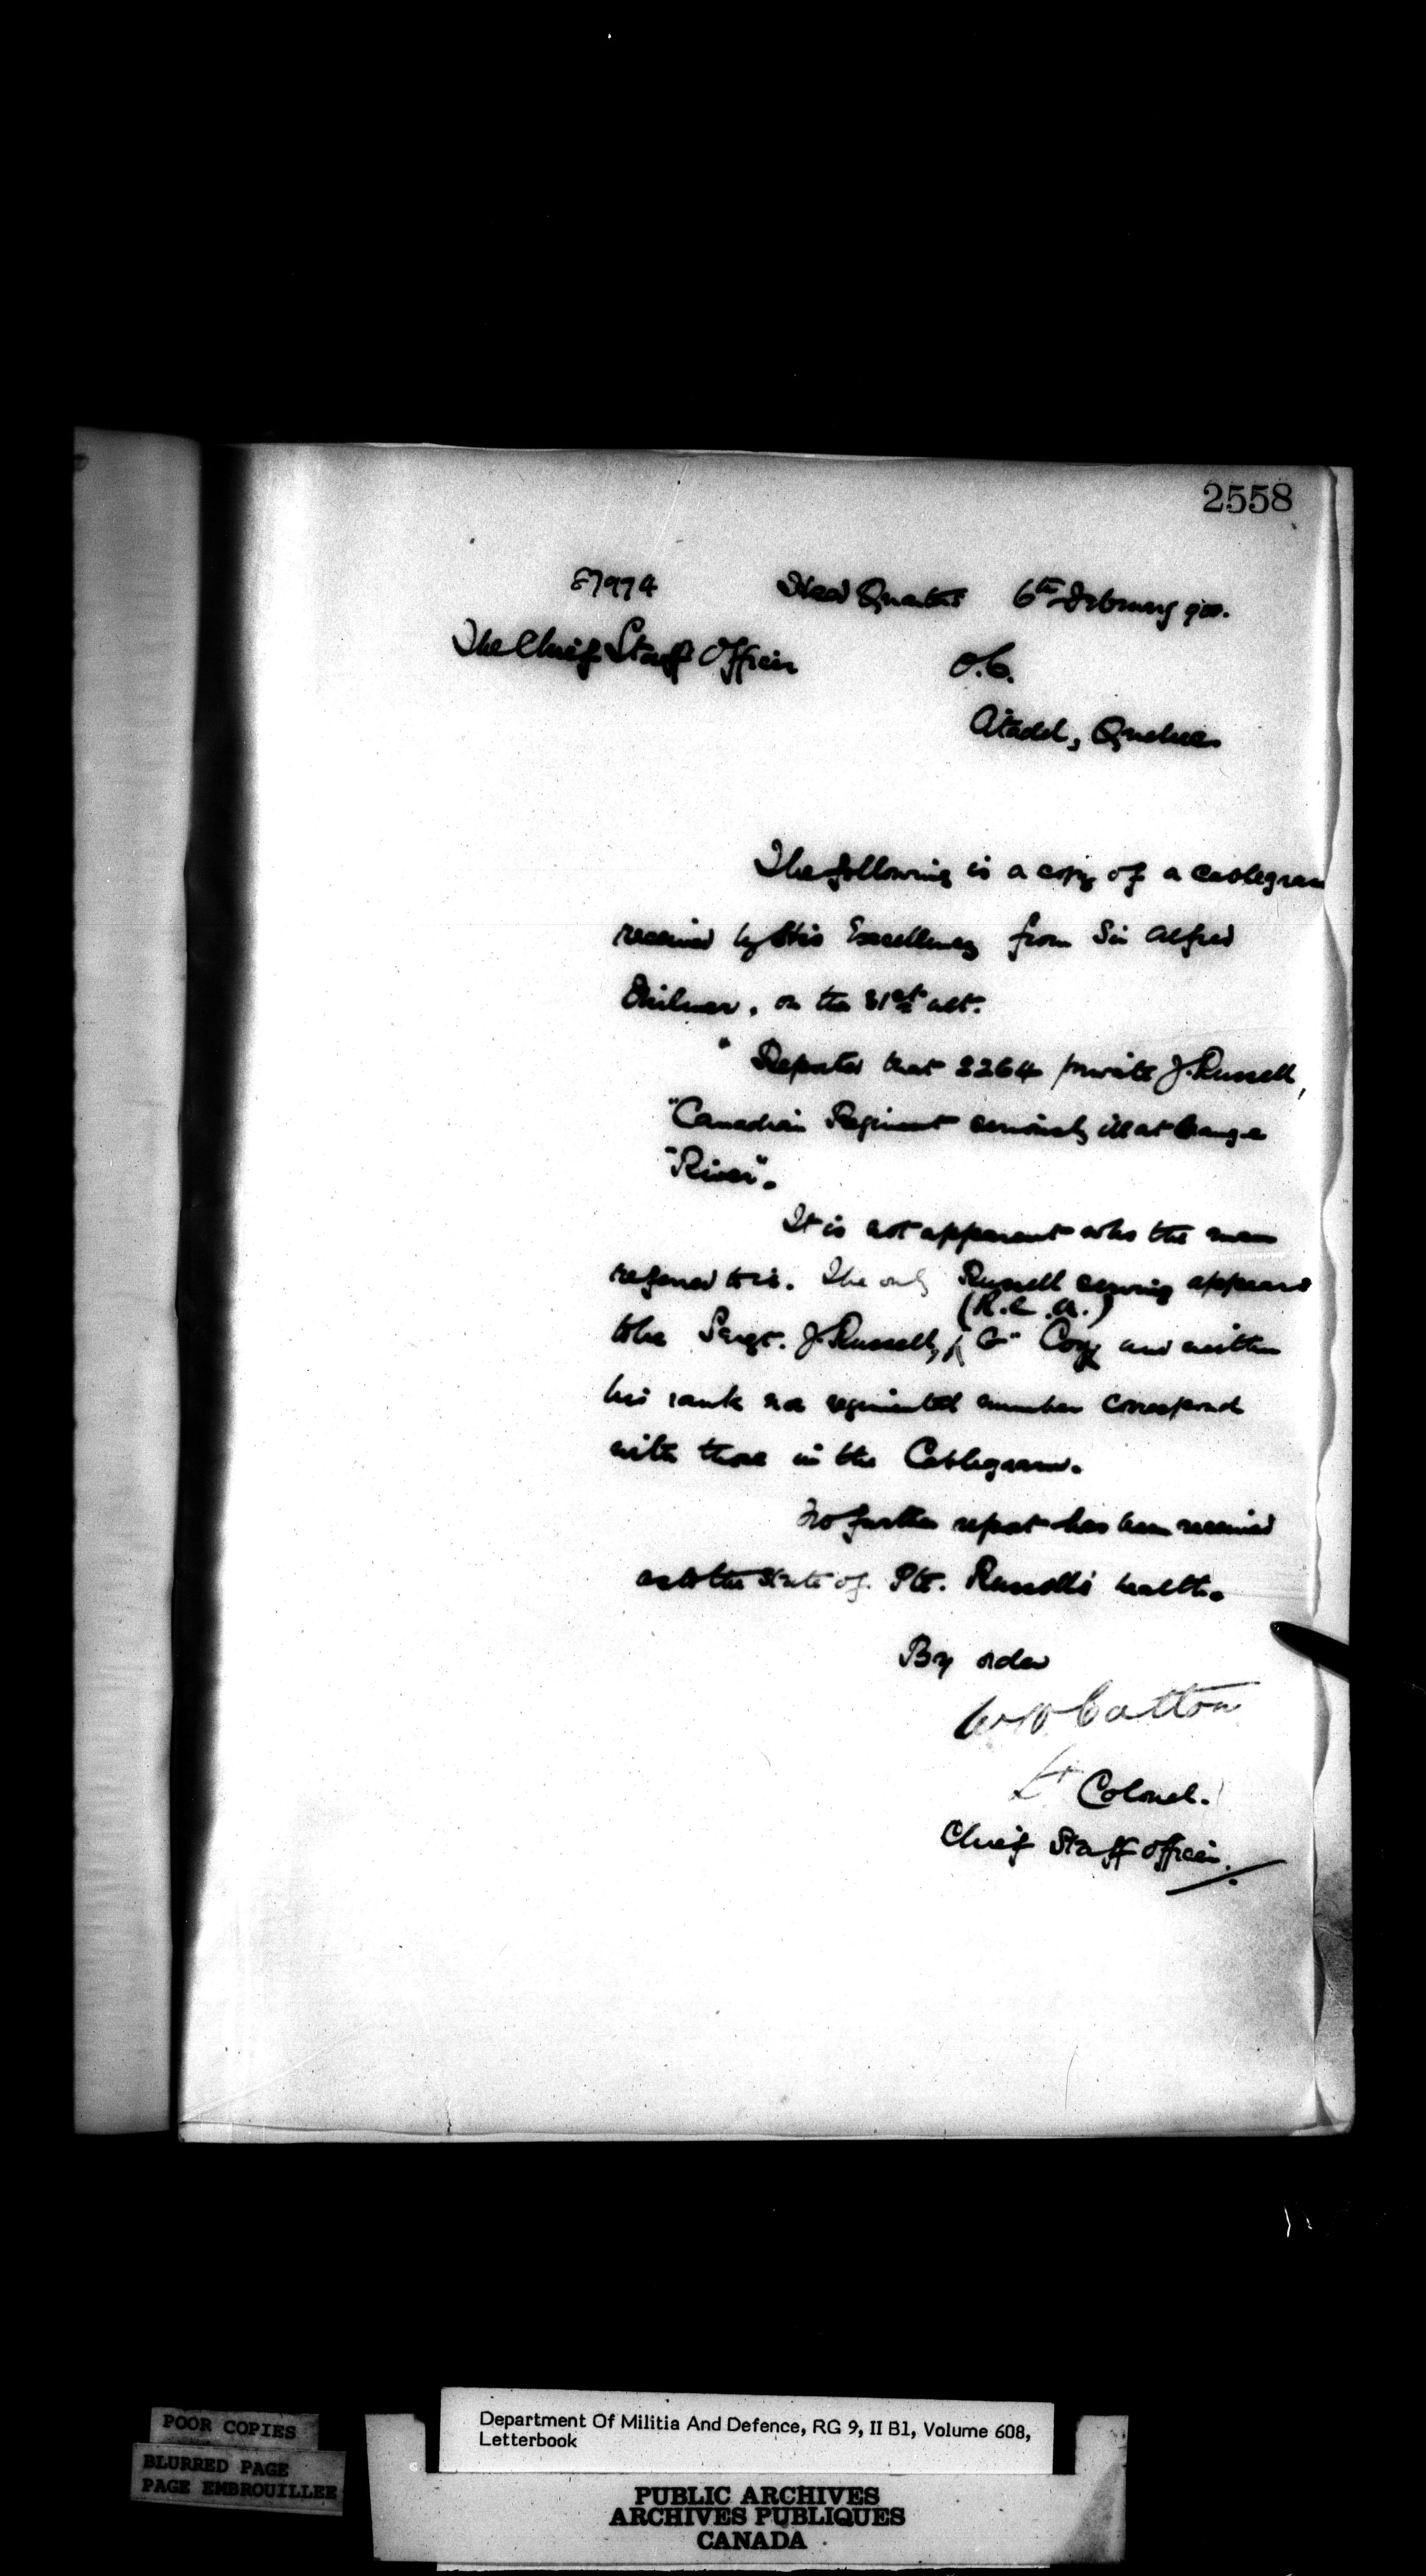 2558
87974 Head Quarters 6th February 900.
The Chief Staff Officer O.C.
Citadel, Quebec
The following is a copy of a cablegram
received by His Excellency from Sir Alfred
Milner, on the 31st ult.
" Reported that 2264 private J. Russell,
"Canadian Regiment seriously ill at Orange
"River".
It is not apparent who the man
referred to is. The only Russell serving appears
(R.C.A.)
to be Sergt. J. Russell, "G" Coy and neither
his rank nor regimental number correspond
with those in the Cablegram.
No further report has been received
as to the state of Pte. Russell's health.
By order
Lt Colonel.
Chief Staff Officer.
POOR COPIES
BLURRED PAGE
PAGE EMBROUILLEE
Department Of Militia And Defence, RG 9, II B1, Volume 608,
Letterbook
PUBLIC ARCHIVES
ARCHIVES PUBLIQUES
CANADA